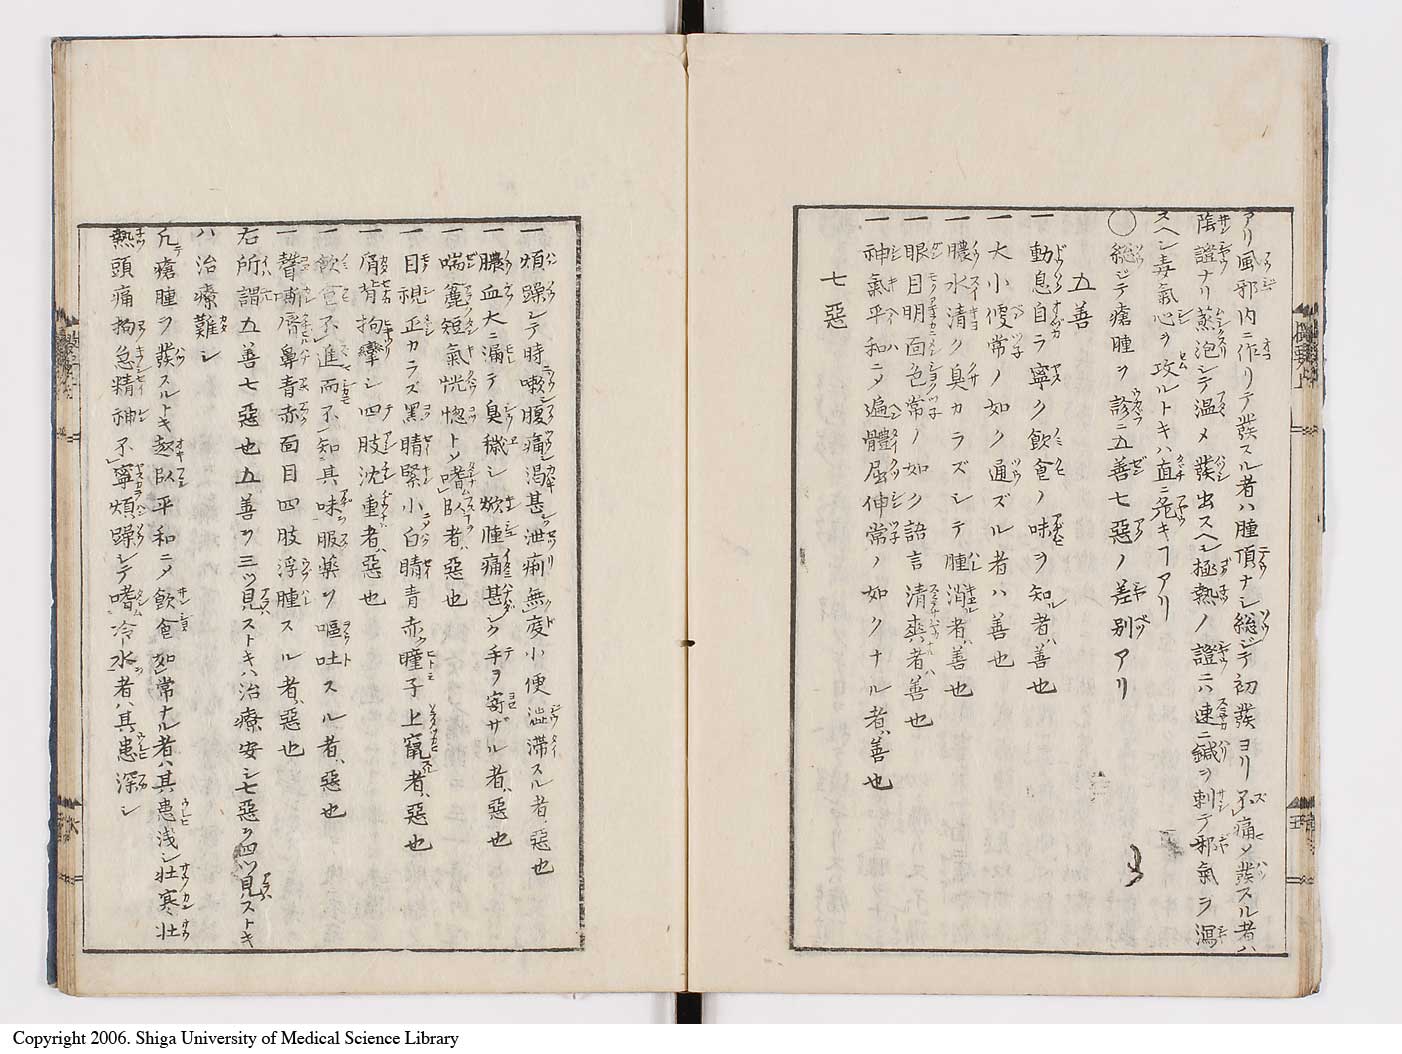 アリ風邪内ニ作リテ發スル者ハ腫頂ナシ総ジテ初發ヨリ不痛〆發スル者ハ
陰證ナリ蒸泡シテ温メ發出スヘシ極熱ノ證ニハ速ニ鍼ヲ刺テ邪氣ヲ瀉
スヘシ毒氣心ヲ攻ルトキハ直ニ危キヿアリ
〇総ジテ瘡腫ヲ診ニ五善七惡ノ差別アリ
五善
一動息自ラ寧ク飲食ノ味ヲ知者ハ善也
一大小便常ノ如ク通ズル者ハ善也
一膿水清ク臭カラズシテ腫消者ハ善也
一眼目明面色常ノ如ク語言清爽者ハ善也
一神氣平和ニ〆遍體屈伸常ノ如クナル者ハ善也
七惡
一煩躁シテ時嗽腹痛渇甚泄痢無度小便澁滞スル者ハ惡也
一膿血大ニ漏テ臭穢シ焮腫痛甚シク手ヲ寄ザル者ハ惡也
一喘麤短氣恍惚ト〆嗜臥者ハ惡也
一目視正カラズ黒睛緊小白睛青赤ク瞳子上竄者ハ惡也
一肩背拘攣シ四肢沈重者ハ惡也
一飲食不進而不知其味服薬ヲ嘔吐スル者ハ惡也
一聲嘶唇鼻青赤面目四肢浮腫スル者ハ惡也
右所謂五善七惡也五善ヲ三ツ見ストキハ治療安シ七惡ヲ四ツ見ストキ
ハ治療難シ
凡テ瘡腫ヲ發スルトキ起臥平和ニ〆飲食如常ナル者ハ其患浅シ壮寒壮
熱頭痛拘急精神不寧煩躁シテ嗜冷水者ハ其患深シ
Copyright 2006. Shiga University of Medical Science Library